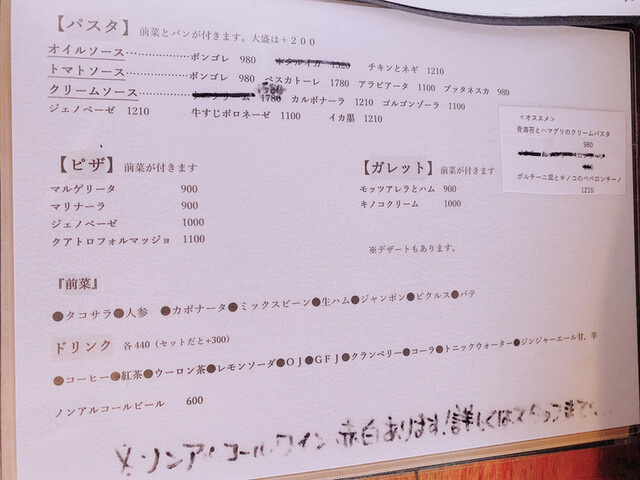 【パスタ】 前菜とパンが付きます。大盛は＋２００
オイルソース……………ボンゴレ 980 チキンとネギ 1210
トマトソース……………ボンゴレ 980 ペスカトーレ 1780 アラビアータ 1100 プッタネスカ 980
クリームソース…………… カルボナーラ 1210 ゴルゴンゾーラ 1100
ジェノベーゼ 1210 牛すじボロネーゼ 1100 イカ墨 1210
＜オススメ＞
青海苔とハマグリのクリームパスタ
980
ポルチーニ茸とキノコのペペロンチーノ
1210
【ピザ】 前菜が付きます
マルゲリータ 900
マリナーラ 900
ジェノベーゼ 1000
クアトロフォルマッジョ 1100
【ガレット】 前菜が付きます
モッツアレラとハム 900
キノコクリーム 1000
※デザートもあります。
『前菜』
●タコサラ●人参 ●カポナータ●ミックスビーン●生ハム●ジャンボン●ピクルス●パテ
ドリンク 各440（セットだと+300）
●コーヒー●紅茶●ウーロン茶●レモンソーダ●ＯＪ●ＧＦＪ●クランベリー●コーラ●トニックウォーター●ジンジャーエール甘、辛
ノンアルコールビール 600